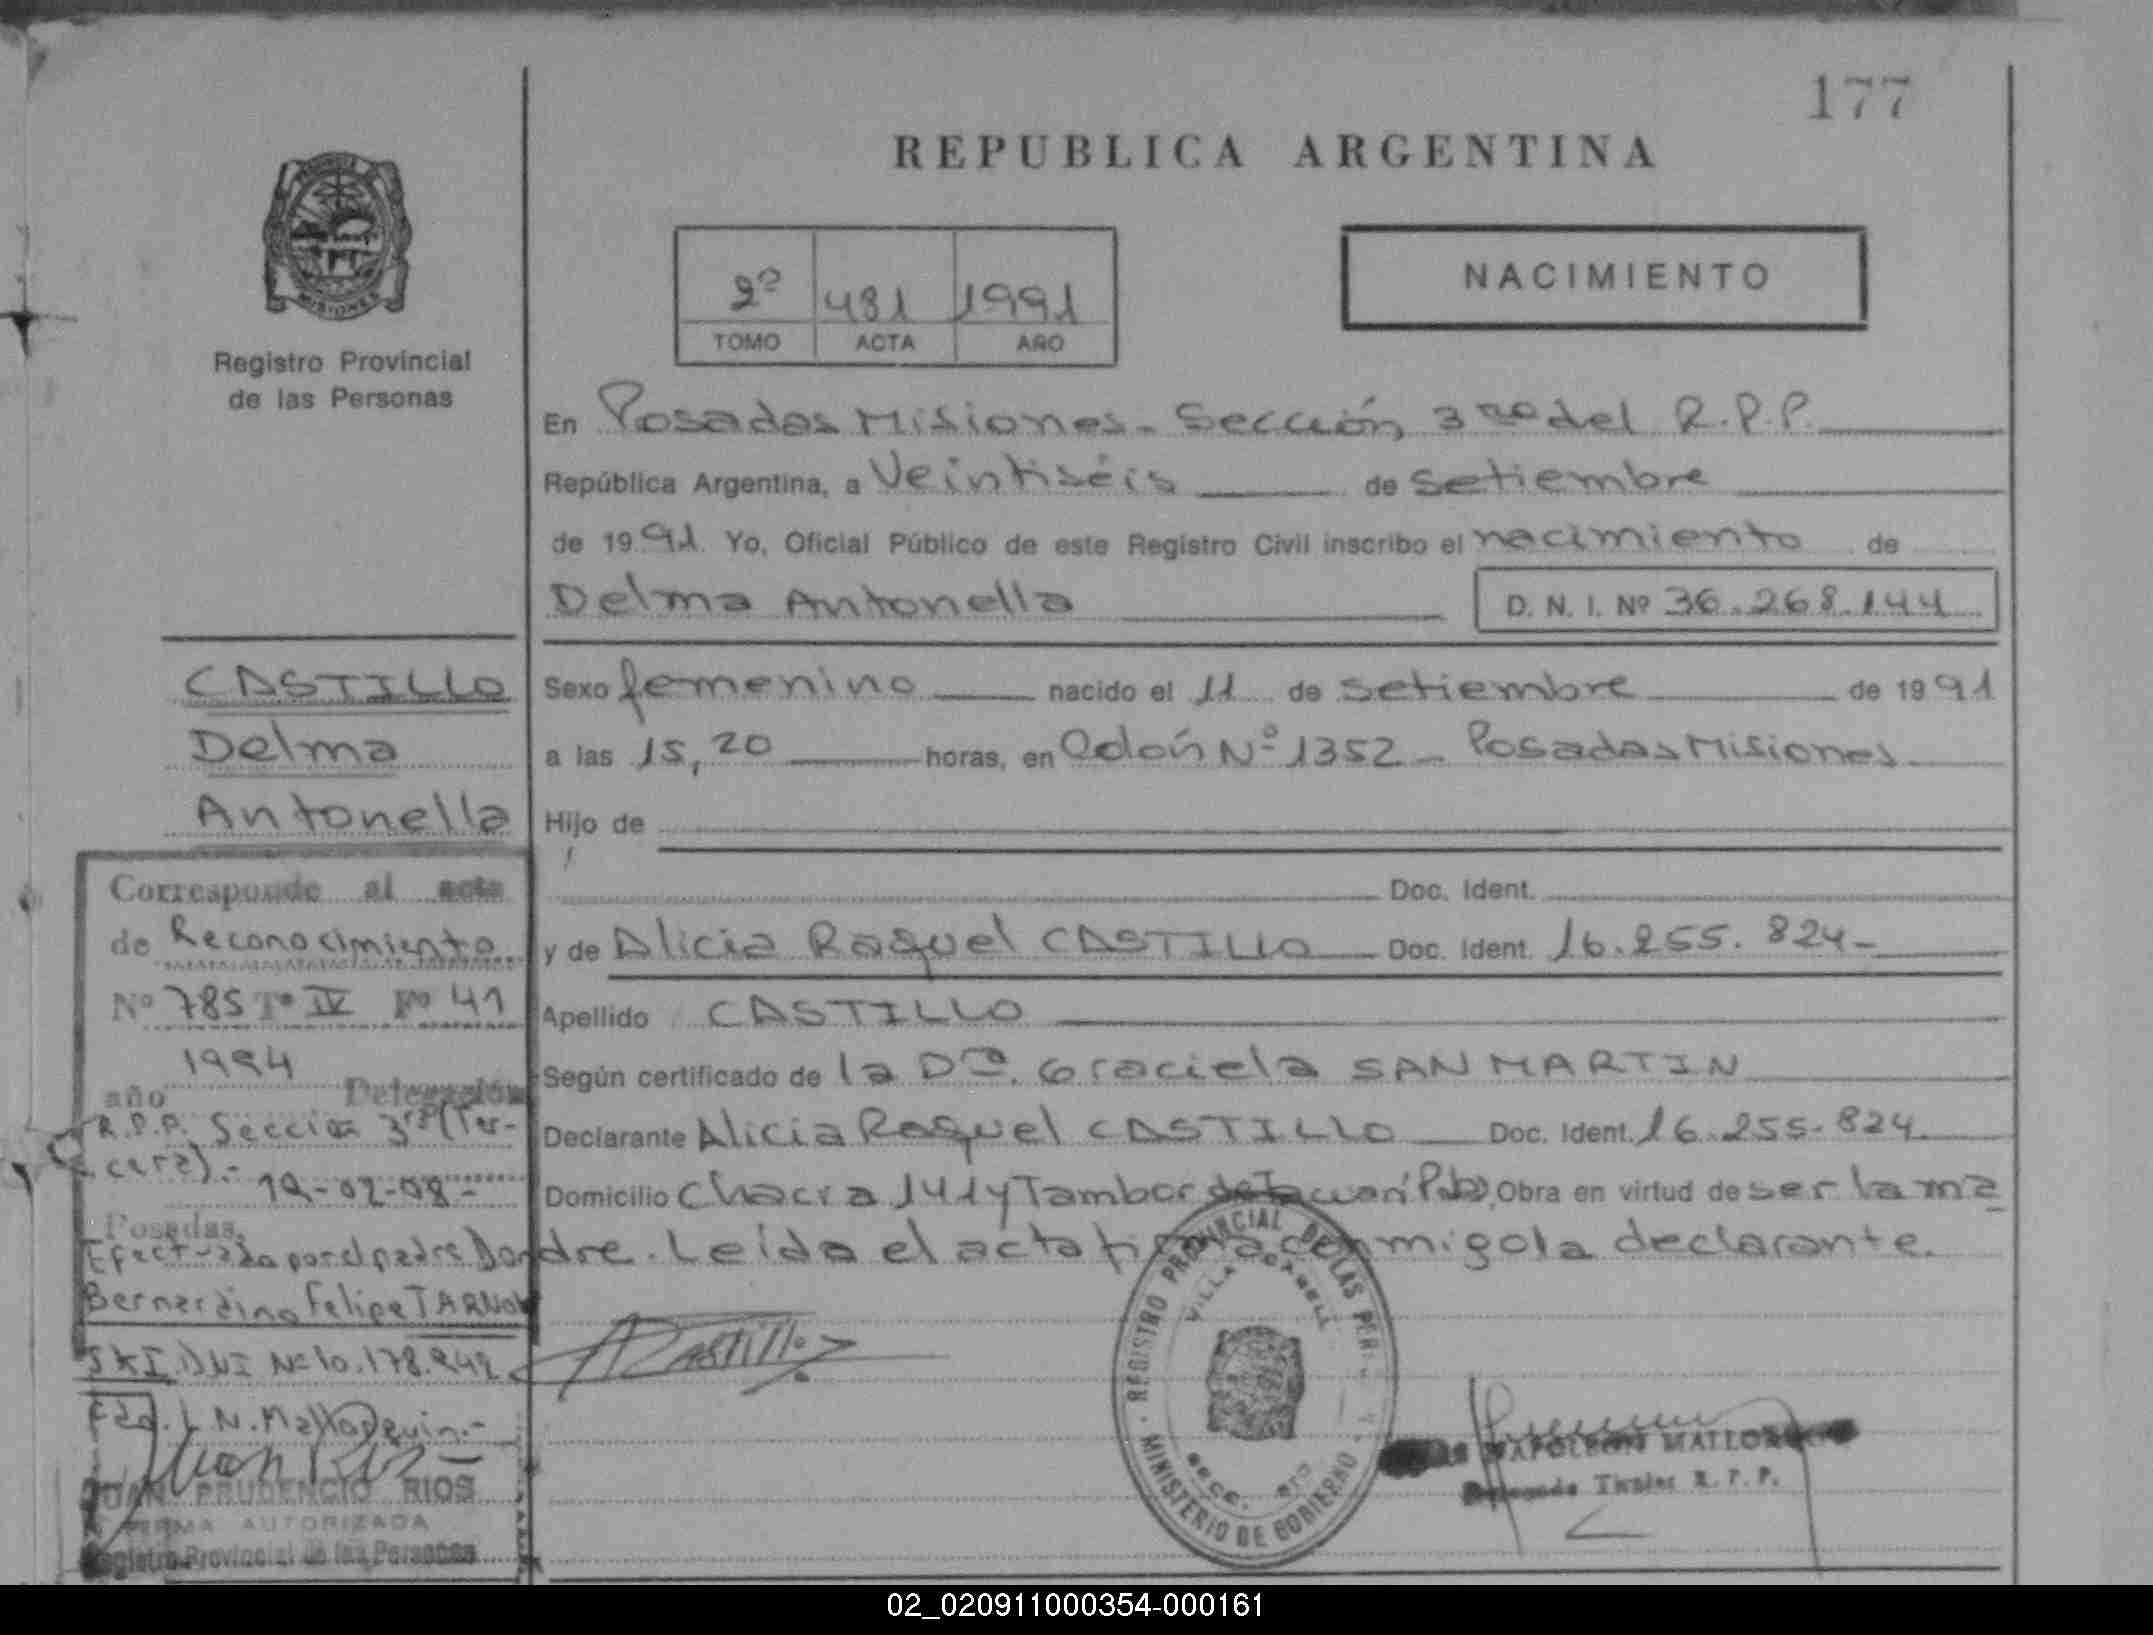 177
REPUBLICA ARGENTINA
MISIONES
Registro Provincial
de las Personas
2º 481 1991
TOMO ACTA AÑO
NACIMIENTO
En Posadas Misiones - Sección 3ra del R.P.P.
República Argentina, a Veintiséis de Setiembre
de 1991 Yo, Oficial Público de este Registro Civil inscribo el nacimiento de
Delma Antonella
D. N. I. Nº 36.268.144
CASTILLO
Delma
Antonella
Sexo femenino nacido el 11 de Setiembre de 1991
a las 15,20 horas, en Nº 1352 - Posadas Misiones
Hijo de
Doc. Ident.
y de Alicia Raquel CASTILLO Doc. Ident. 16.255.824-
Apellido CASTILLO
Según certificado de la Dra. Graciela SAN MARTIN
Declarante Alicia Raquel CASTILLO Doc. Ident. 16.255.824
Domicilio Chacra 141 y Tambor de Tacuarí Obra en virtud de ser la ma
dre. Leída el acta firma conmigo la declarante.
Corresponde al acta
de Reconocimiento
Nº 785 Tº IV Fº 41
año 1994 Delegación
R.P.P. Sección 3ra (Ter-
cera).-
Posadas, 19-02-08-
Efectuada por el padre Don
Bernardino Felipe TARNOW
SKI DNI Nº 10.178.942
JUAN PRUDENCIO RIOS
FIRMA AUTORIZADA
Registro Provincial de las Personas
A Castillo
REGISTRO PROVINCIAL DE LAS PER
VILLA
MINISTERIO DE GOBIERNO
NAPOLEON
Delegado Titular R. P. P.
02_020911000354-000161